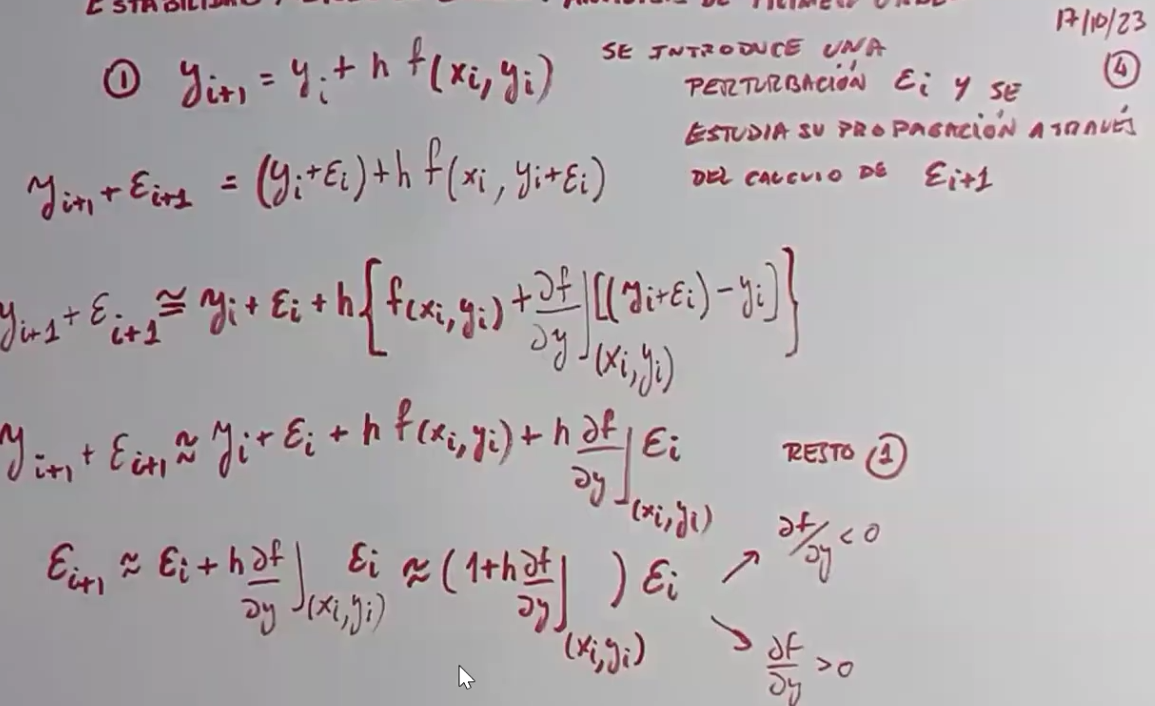 ESTABILIDAD
17/10/23
① y_{i+1} = y_i + h f(x_i, y_i) SE INTRODUCE UNA
PERTURBACIÓN ε_i Y SE ④
ESTUDIA SU PROPAGACIÓN A TRAVÉS
DEL CALCULO DE ε_{i+1}
y_{i+1} + ε_{i+1} = (y_i + ε_i) + h f(x_i, y_i + ε_i)
y_{i+1} + ε_{i+1} ≅ y_i + ε_i + h{f(x_i, y_i) + ∂f/∂y|_{(x_i, y_i)} [(y_i + ε_i) - y_i]}
y_{i+1} + ε_{i+1} ≈ y_i + ε_i + h f(x_i, y_i) + h ∂f/∂y|_{(x_i, y_i)} ε_i RESTO ①
ε_{i+1} ≈ ε_i + h ∂f/∂y|_{(x_i, y_i)} ε_i ≈ (1 + h ∂f/∂y|_{(x_i, y_i)}) ε_i ↗ ∂f/∂y < 0
↘ ∂f/∂y > 0